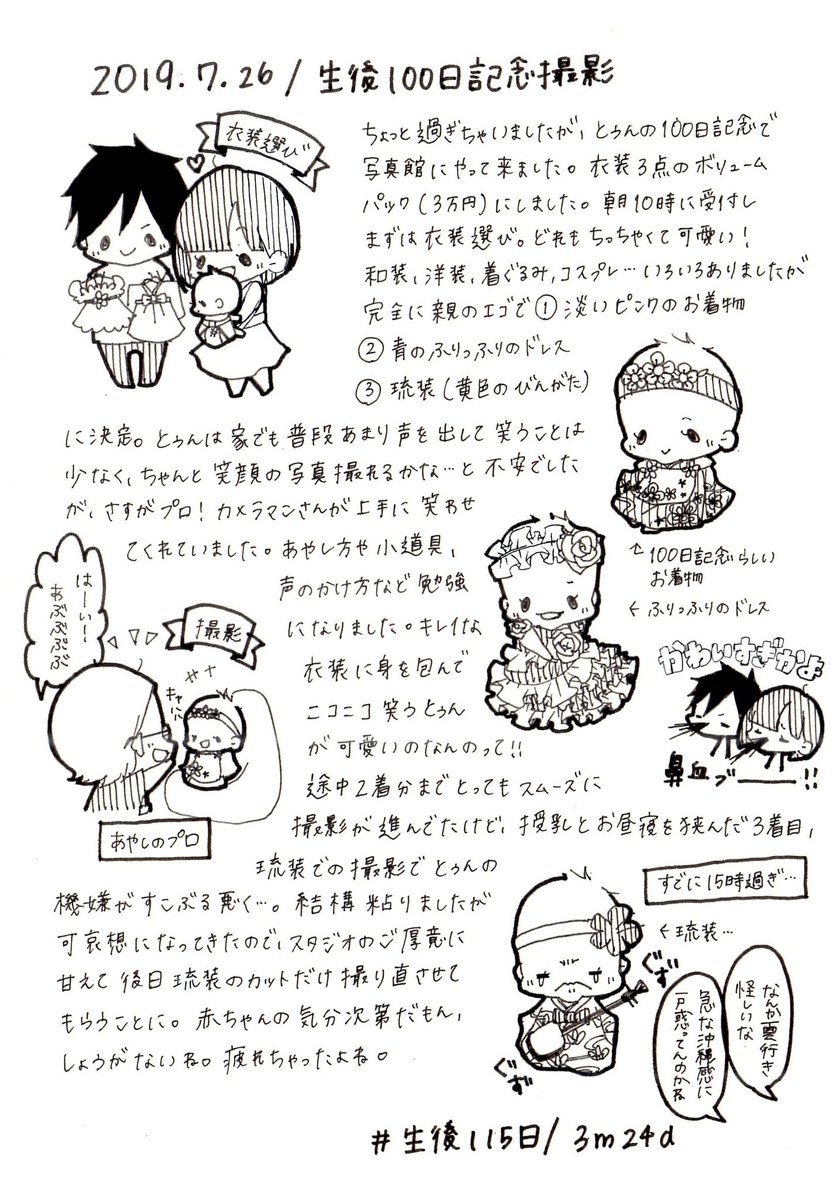 2019.7.26/生後100日記念撮影
衣装選び
ちょっと過ぎちゃいましたが、とぅんの100日記念で
写真館にやって来ました。衣装3点のボリューム
パック(3万円)にしました。朝10時に受付し
まずは衣装選び。どれもちっちゃくて可愛い!
和装、洋装、着ぐるみ、コスプレ…いろいろありましたが
完全に親のエゴで①淡いピンクのお着物
②青のふりっふりのドレス
③琉装(黄色のびんがた)
に決定。とぅんは家でも普段あまり声を出して笑うことは
少なく、ちゃんと笑顔の写真撮れるかな…と不安でした
が、さすがプロ!カメラマンさんが上手に笑わせ
てくれていました。あやし方や小道具、
声のかけ方など勉強
になりました。キレイな
衣装に身を包んで
ニコニコ笑うとぅん
が可愛いのなんのって!!
途中2着分までとってもスムーズに
撮影が進んでたけど、授乳とお昼寝を狭んだ3着目、
琉装での撮影でとぅんの
機嫌がすこぶる悪く…。結構粘りましたが
可哀想になってきたので、スタジオのご厚意に
甘えて後日琉装のカットだけ撮り直させて
もらうことに。赤ちゃんの気分次第だもん、
しょうがないね。疲れちゃったよね。
↑100日記念らしい
お着物
←ふりっふりのドレス
かわいすぎかよ
鼻血ブーーー!!
はーい!
あぶぶぶぶ
撮影
キャハハ
あやしのプロ
すでに15時過ぎ…
←琉装…
ぐず
ぐず
なんか雲行き
怪しいな
急な沖縄感に
戸惑ってんのかね
#生後115日/3m24d